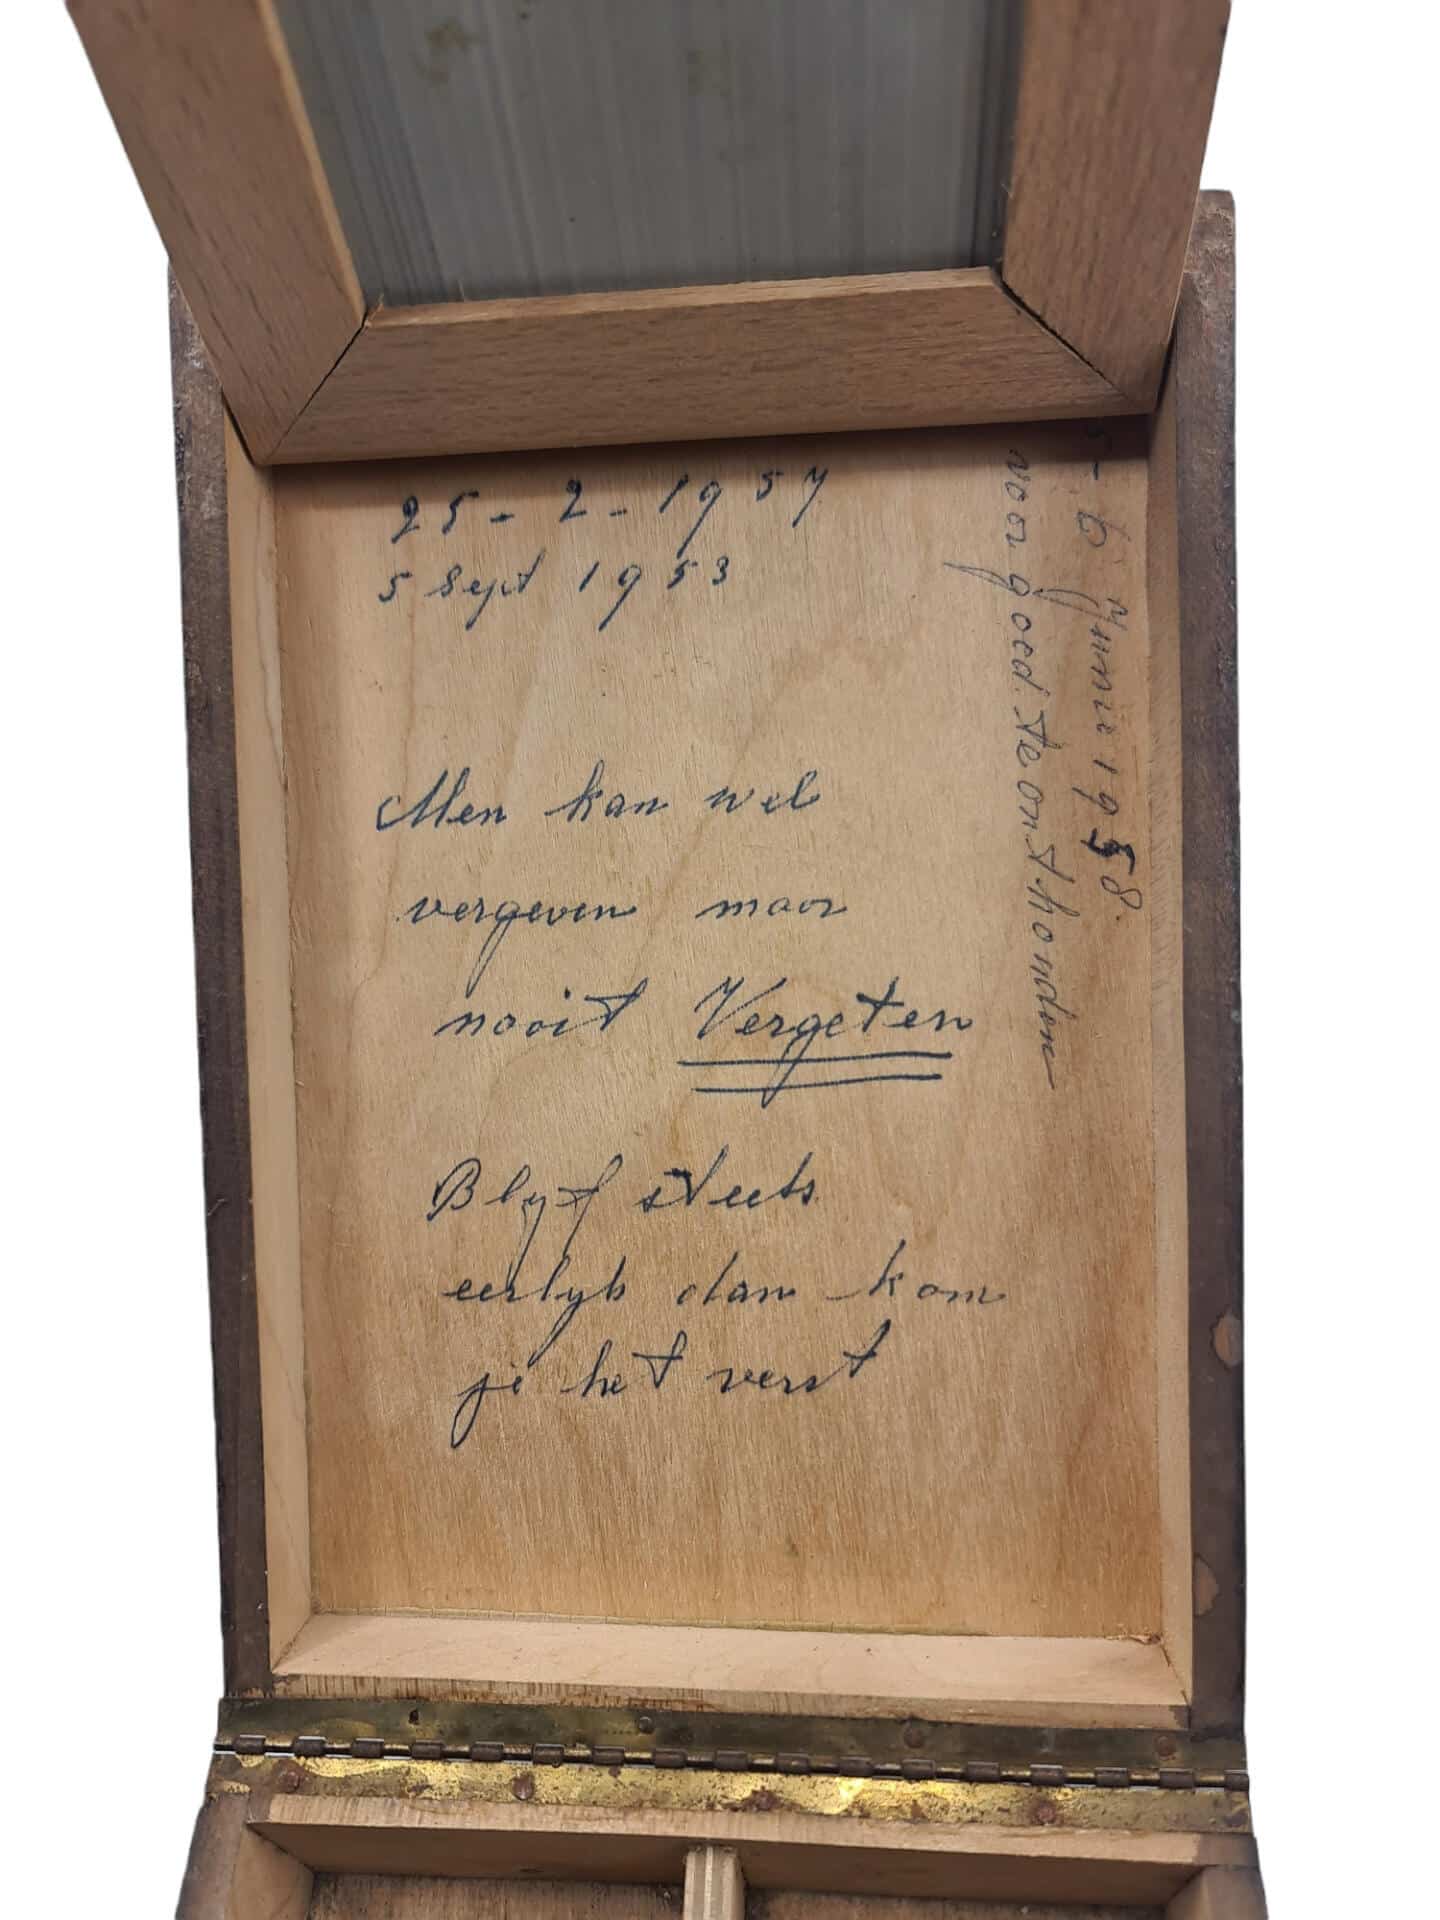 25-2-1957
5 Sept 1953
Men kan wel
vergeven maar
nooit Vergeten
Blyf steets
eerlyk dan kom
je het verst
5-6 Junie 1958.
voor goed te onthouden